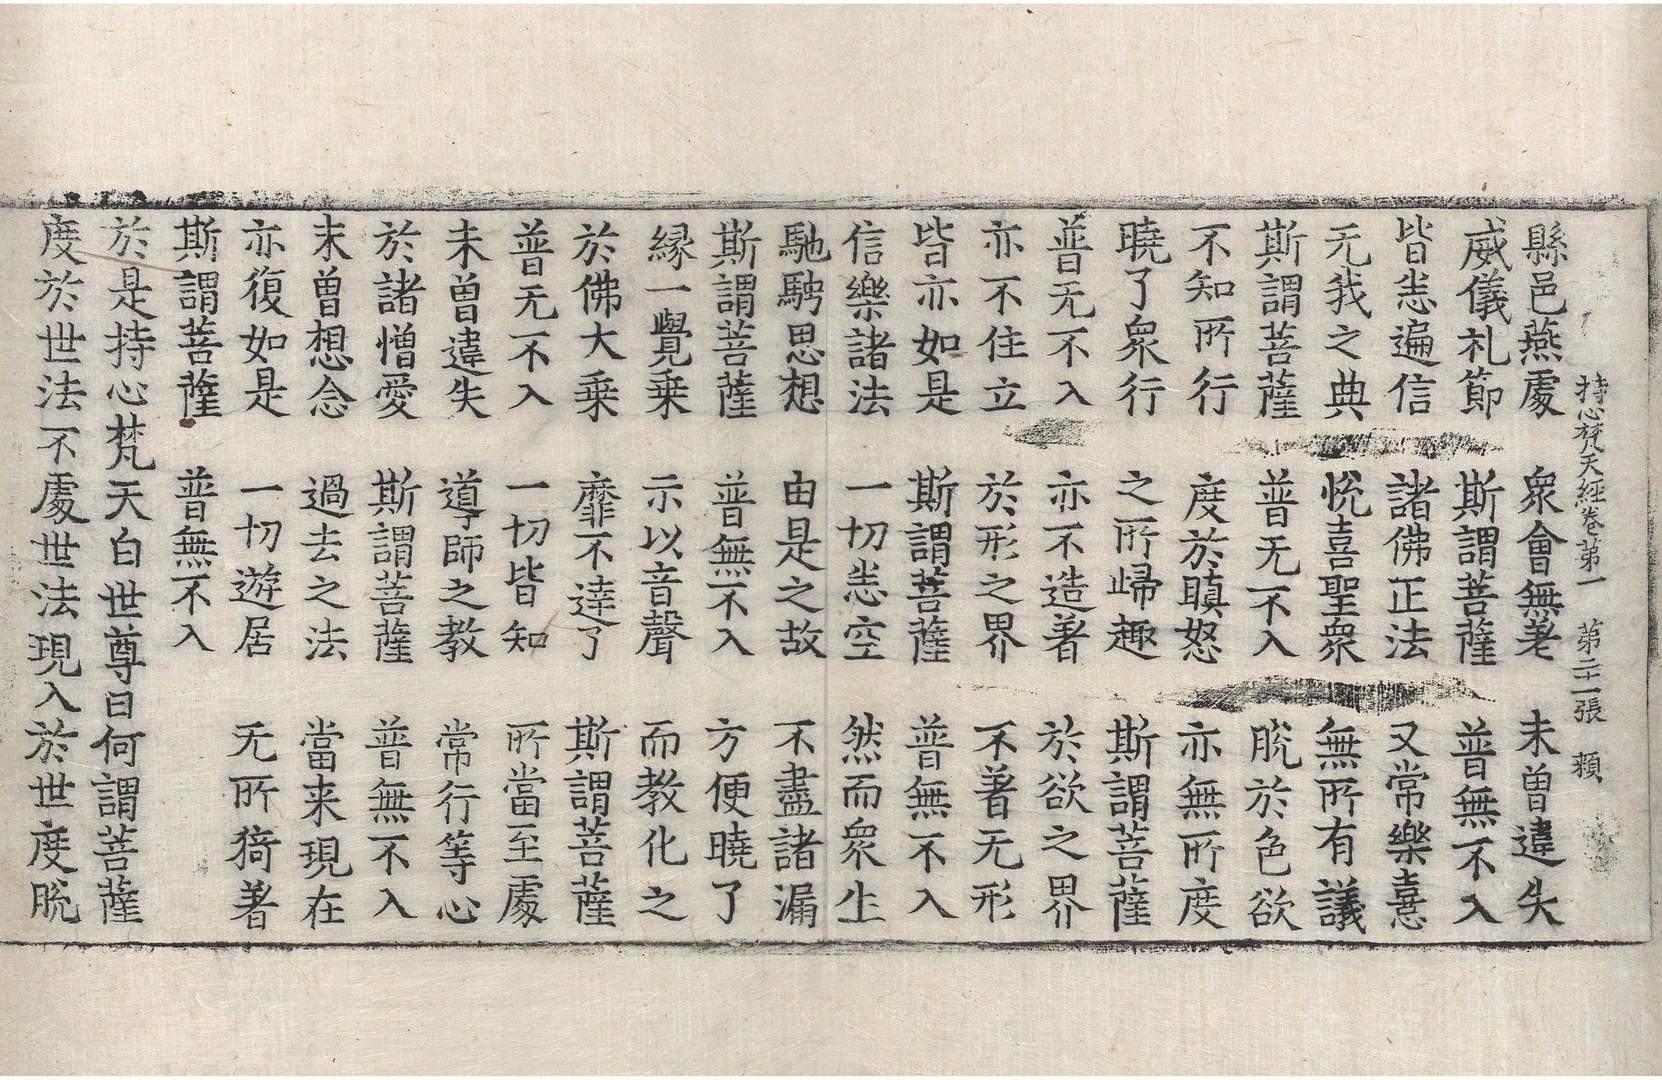 持心梵天經卷第一 第二十一張 賴
縣邑燕處 衆會無老 未曾違失
威儀礼節 斯謂菩薩 普無不入
皆悉遍信 諸佛正法 又常樂憙
无我之典 悅喜聖衆 無所有議
斯謂菩薩 普无不入 脫於色欲
不知所行 度於瞋怒 亦無所度
曉了衆行 之所歸趣 斯謂菩薩
普无不入 亦不造著 於欲之界
亦不住立 於形之界 不著无形
皆亦如是 斯謂菩薩 普無不入
信樂諸法 一切悉空 然而衆生
馳騁思想 由是之故 不盡諸漏
斯謂菩薩 普無不入 方便曉了
縁一覺乗 示以音聲 而教化之
於佛大乗 靡不達了 斯謂菩薩
普无不入 一切皆知 所當至處
未曽違失 導師之教 常行等心
於諸憎愛 斯謂菩薩 普無不入
未曽想念 過去之法 當来現在
亦復如是 一切遊居 无所猗著
斯謂菩薩 普無不入
於是持心梵天白世尊曰何謂菩薩
度於世法不處世法現入於世度脫